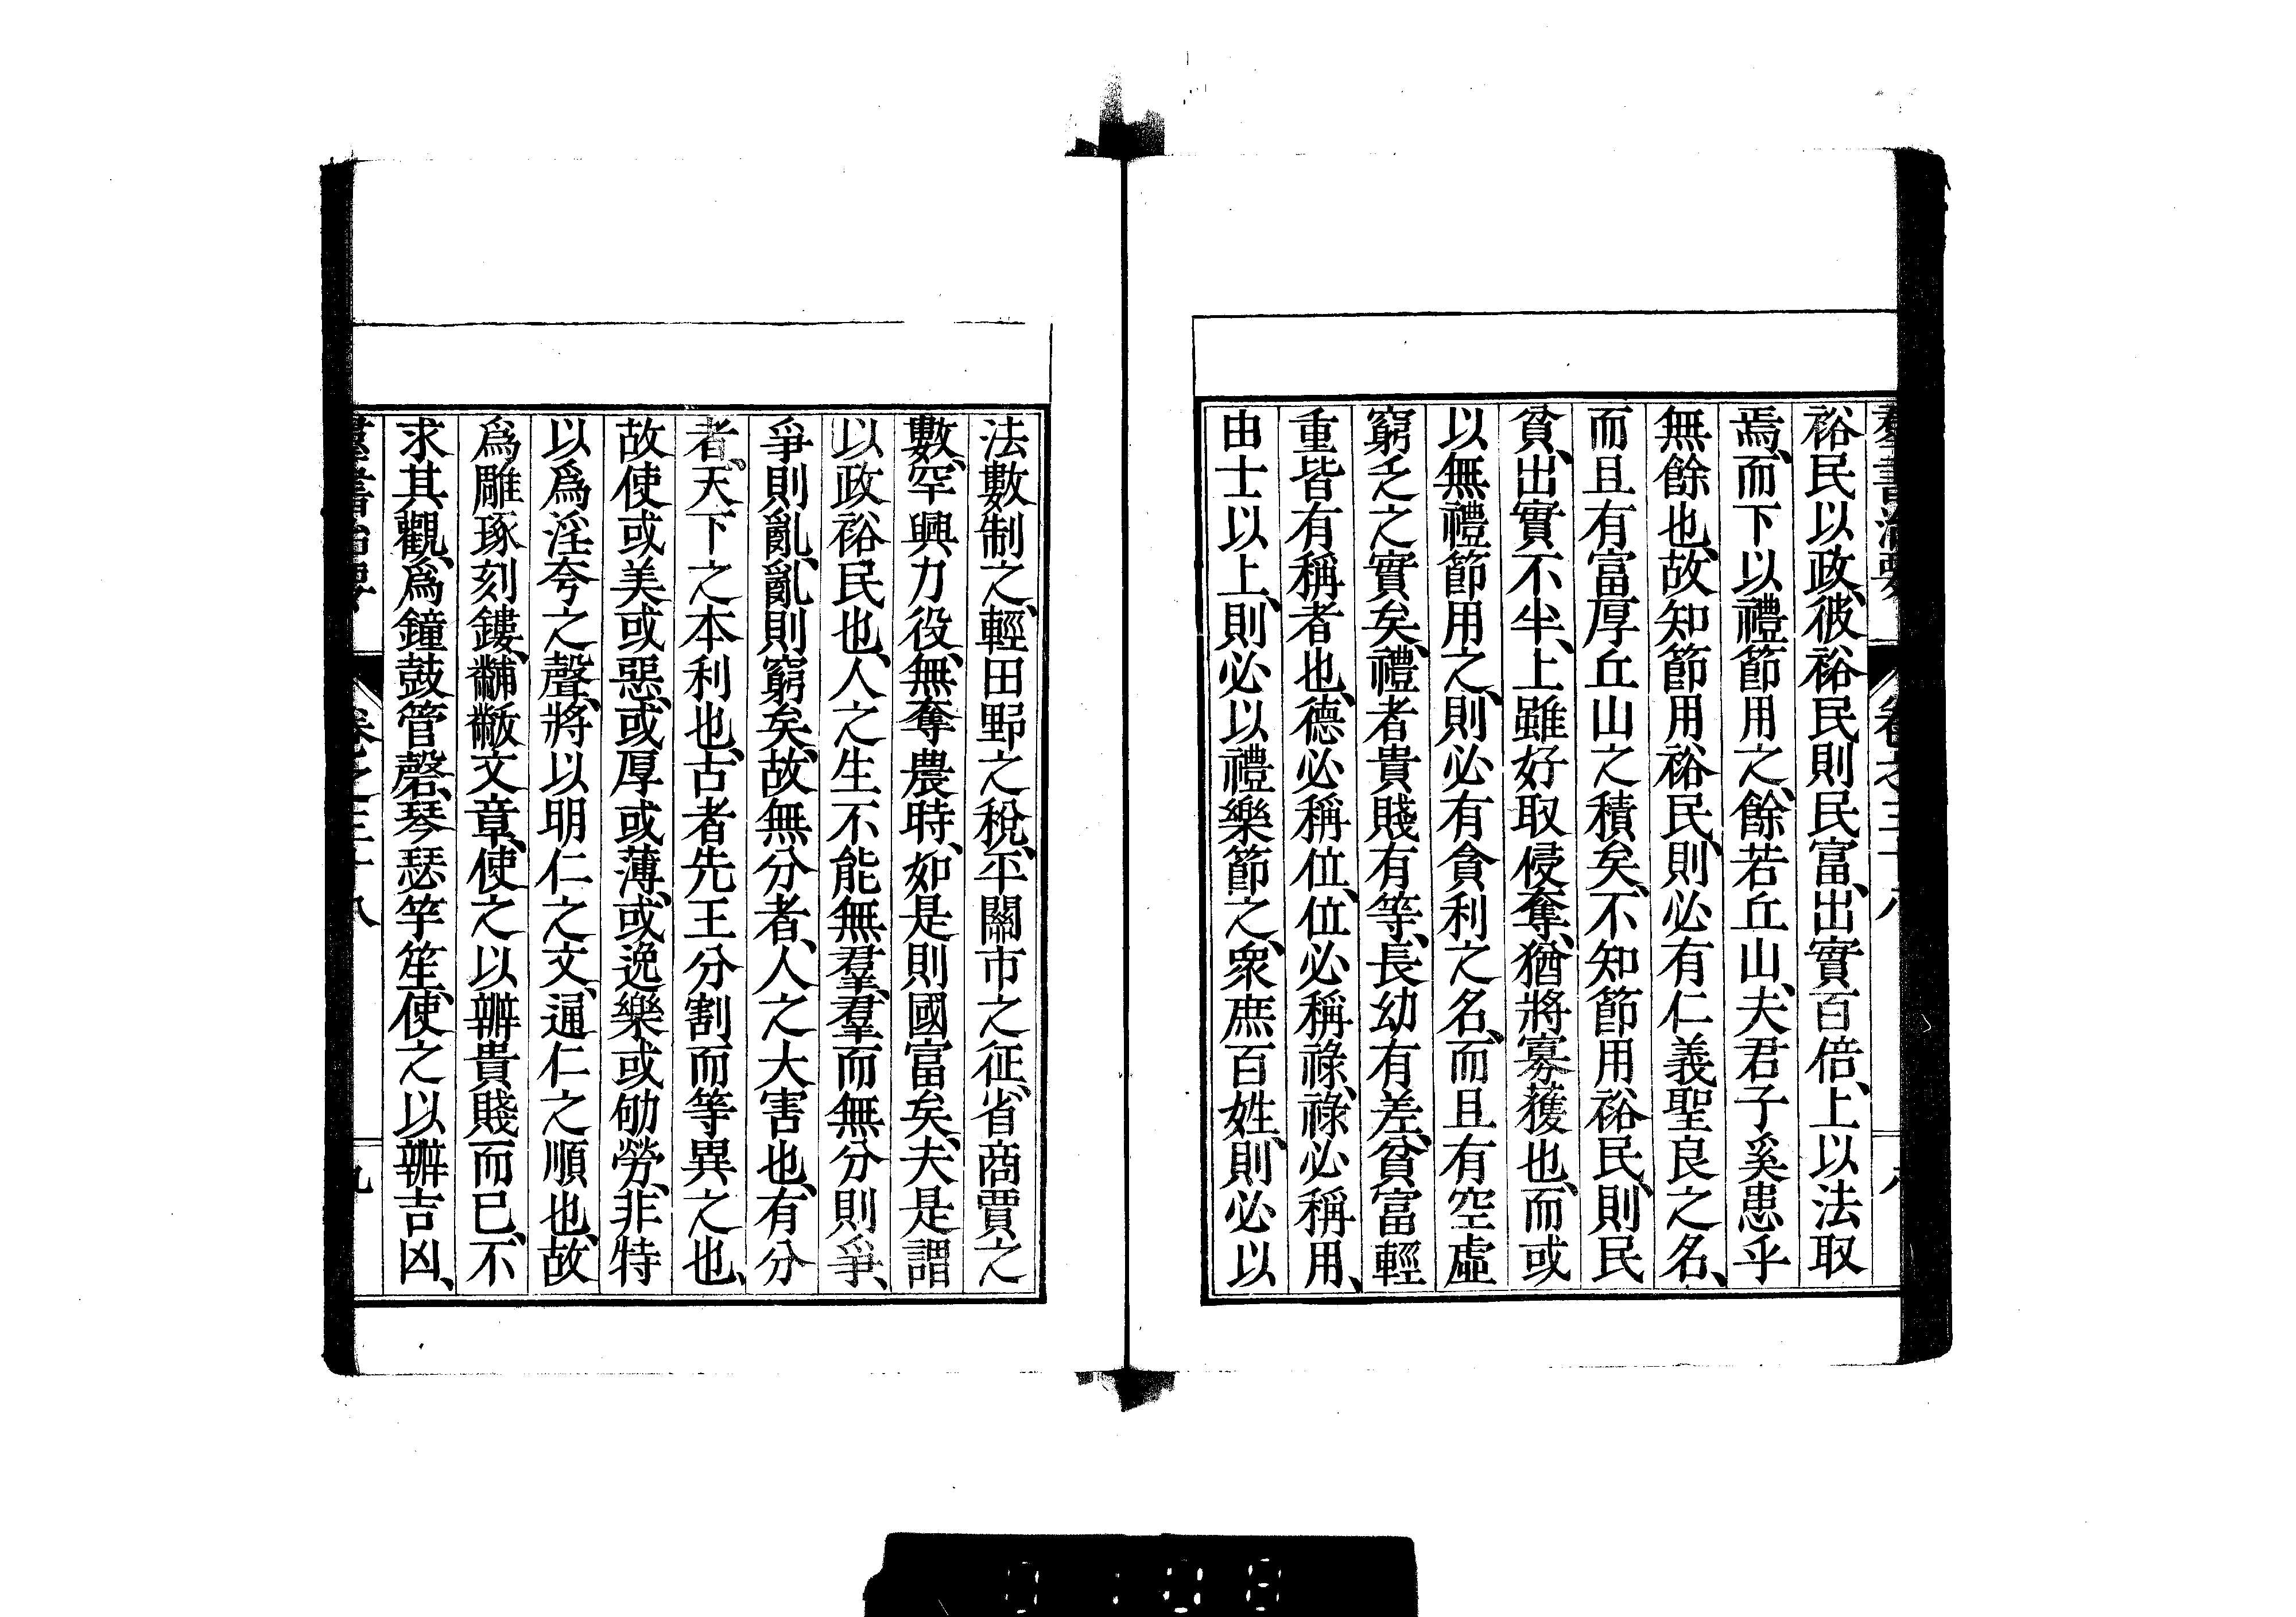 羣書治要 卷之三十八 八
裕民以政、彼裕民則民富、出實百倍、上以法取
焉、而下以禮節用之、餘若丘山、夫君子奚患乎
無餘也、故知節用裕民、則必有仁義聖良之名、
而且有富厚丘山之積矣、不知節用裕民、則民
貧、出實不半、上雖好取侵奪、猶將寡獲也、而或
以無禮節用之、則必有貪利之名、而且有空虛
窮乏之實矣、禮者貴賤有等、長幼有差、貧富輕
重皆有稱者也、德必稱位、位必稱祿、祿必稱用、
由士以上、則必以禮樂節之、衆庶百姓、則必以
法數制之、輕田野之稅、平關市之征、省商賈之
數、罕興力役、無奪農時、如是則國富矣、夫是謂
以政裕民也、人之生不能無羣、羣而無分則爭、
爭則亂、亂則窮矣、故無分者、人之大害也、有分
者、天下之本利也、古者先王分割而等異之也、
故使或美或惡、或厚或薄、或逸樂或劬勞、非特
以爲淫夸之聲、將以明仁之文、通仁之順也、故
爲雕琢刻鏤、黼黻文章、使之以辨貴賤而已、不
求其觀、爲鐘鼓管磬、琴瑟竽笙、使之以辨吉凶、
羣書治要 卷之三十八 九
0108